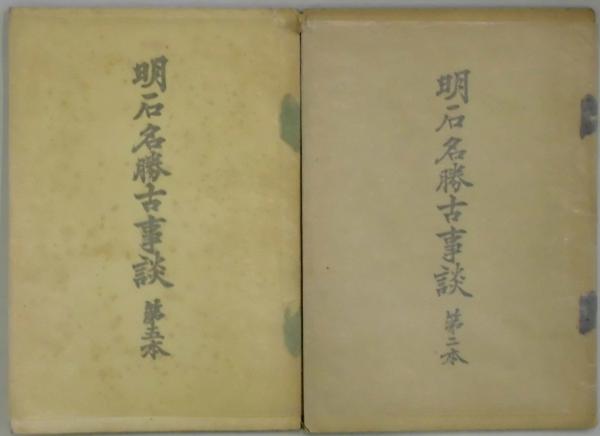 明石名勝古事談 第五本
明石名勝古事談 第二本